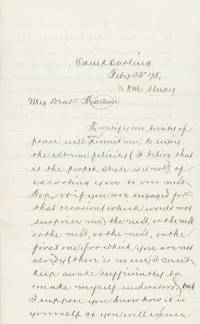 Camp Darling
Feby 22d 75,
3 P.M. sleepy
My Dear
peace will permit me to enjoy
the extreme felicity (I believe that
is the proper style is it not) of
escorting you to our next
Hop or if you are engaged for
that occasion (which would not
surprise me) the next, or the next
or the next, or the next, or the
first one for which you are not
already (there is no use I can't
keep awake sufficiently to
make myself understood, but
I suppose you know how it is
yourself so you will excuse